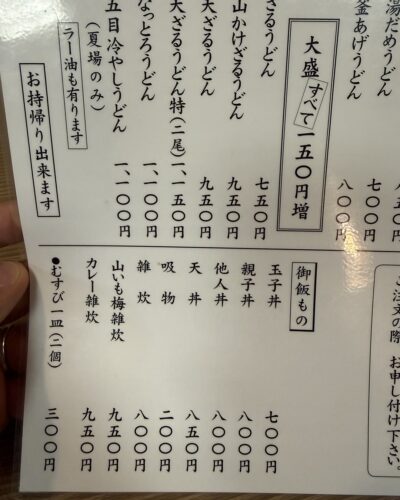 湯だめうどん 八五〇円
釜あげうどん 七〇〇円
八〇〇円
大盛すべて一五〇円増
ざるうどん 七五〇円
山かけざるうどん 九五〇円
天ざるうどん 九五〇円
天ざるうどん特(二尾) 一、一五〇円
なっとろうどん 一、一〇〇円
五目冷やしうどん 一、一〇〇円
(夏場のみ)
ラー油も有ります
お持帰り出来ます
ご注文の際、お申し付け下さい。
御飯もの
玉子丼 七〇〇円
親子丼 八〇〇円
他人丼 八〇〇円
天丼 八五〇円
吸物 二〇〇円
雑炊 八〇〇円
山いも梅雑炊 九五〇円
カレー雑炊 九五〇円
●むすび一皿(二個) 三〇〇円